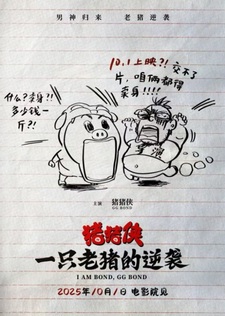 男神归来 老猪逆袭
10.1上映?! 交不了
片,咱俩都得
卖身!!!!
什么?卖身?!
多少钱一
斤?!
主演 猪猪侠
GG BOND
猪猪侠
一只老猪的逆袭
I AM BOND, GG BOND
2025年10月1日 电影院见